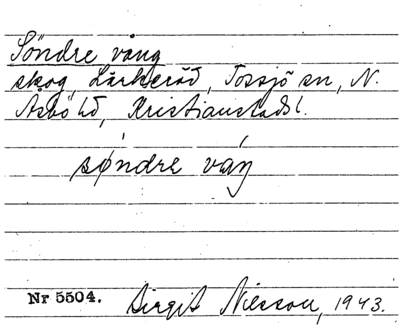 Söndre vång
skog, Lärkeröd, Tossjö sn, N.
Åsbo hd, Kristianstads l.
søndre váŋ
Nr 5504. Birgit Nilsson, 1943.